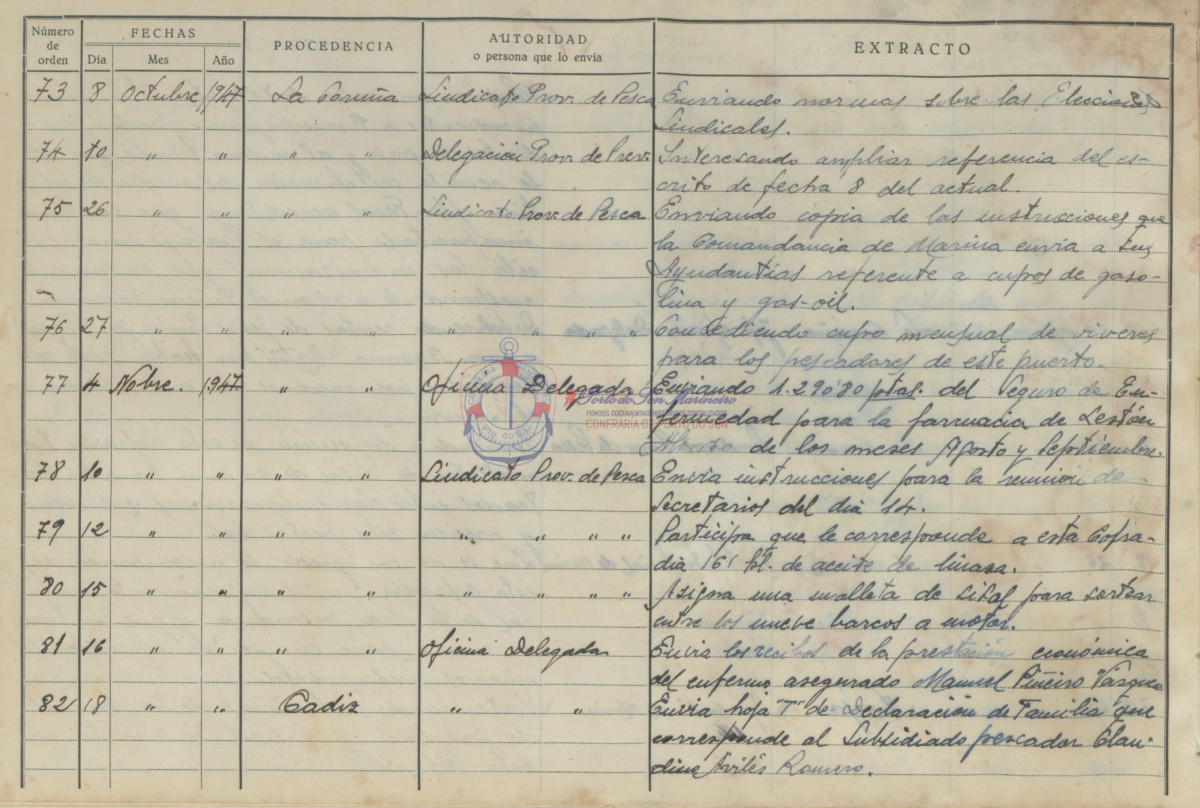 Número de orden FECHAS Día Mes Año PROCEDENCIA AUTORIDAD o persona que lo envía EXTRACTO
73 8 Octubre 1947 La Coruña Sindicato Prov. de Pesca Enviando normas sobre las Elecciones
Sindicales.
74 10 " " " " Delegación Prov. de Prev. Interesando ampliar referencia del es-
crito de fecha 8 del actual.
75 26 " " " " Sindicato Prov. de Pesca Enviando copia de las instrucciones que
la Comandancia de Marina envia a sus
Ayudantías referente a cupos de gaso-
lina y gas-oil.
76 27 " " " " " " " " Concediendo cupo mensual de viveres
para los pescadores de este puerto.
77 4 Nobre. 1947 " " Oficina Delegada Enviando 1.290'80 ptas. del Seguro de En-
fermedad para la farmacia de Lestón
de los meses Agosto y Septiembre.
78 10 " " " " Sindicato Prov. de Pesca Envia instrucciones para la reunion de
Secretarios del dia 14.
79 12 " " " " " " " " Participa que le corresponde a esta Cofra-
dia 161 Kl. de aceite de linaza.
80 15 " " " " " " " " Asigna una malleta de sisal para sortear
entre los nueve barcos a motor.
81 16 " " " " Oficina Delegada Envia los recibos de la prestación económica
del enfermo asegurado Manuel Piñeiro Vazquez
82 18 " " Cadiz " " Envia hoja "T" de Declaración de Familia que
corresponde al Subsidiado pescador Clau-
dino Avilés Romero.
Porto do Son Marineiro
CONFRARÍA DE PORTO DO SON
Pto. do Son